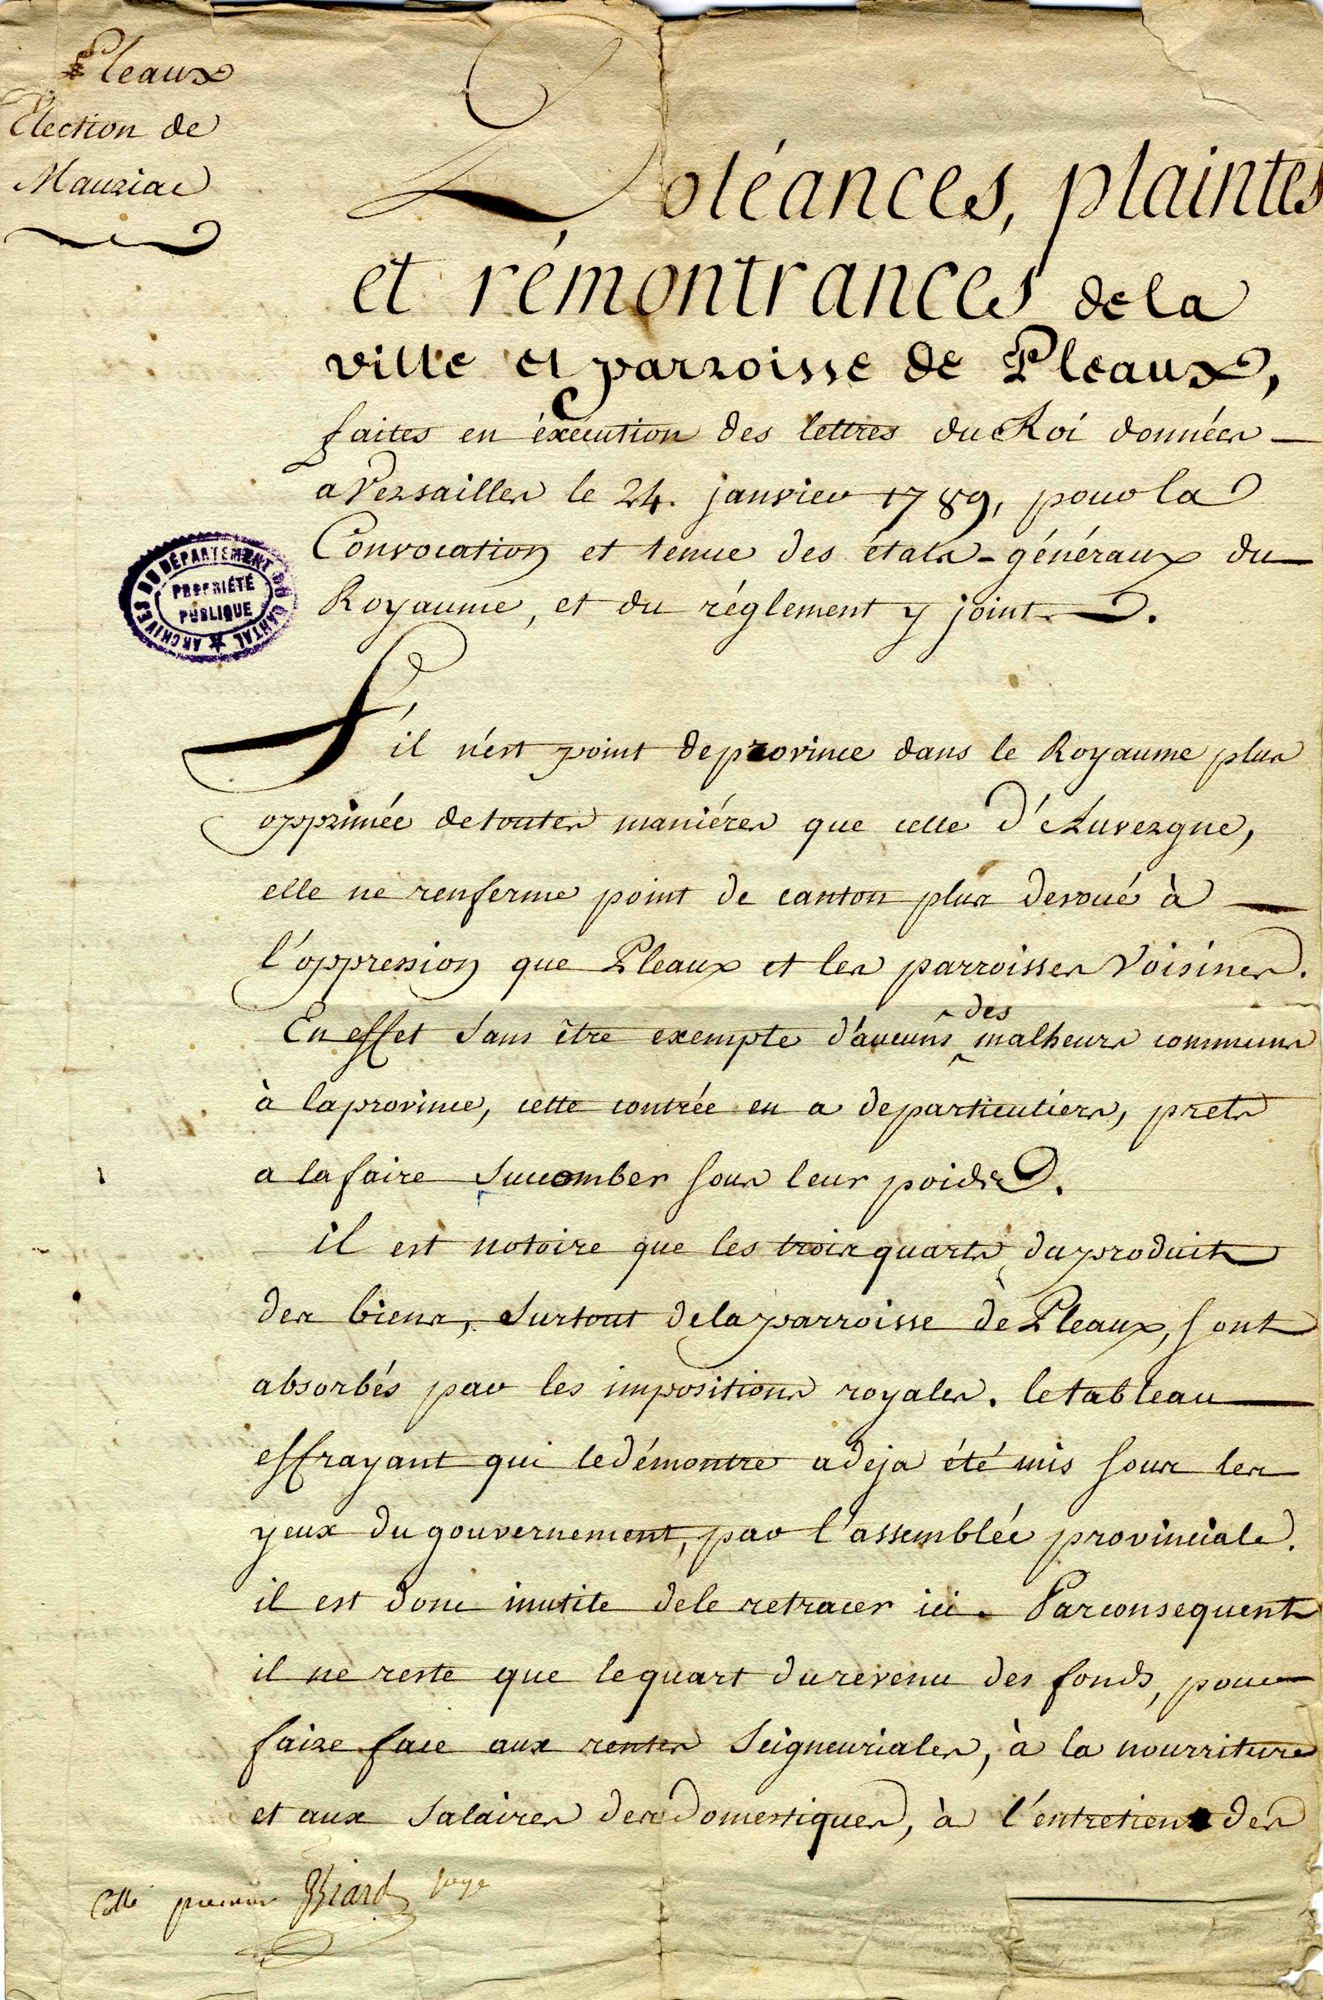 Pleaux
Election de
Mauriac
Doléances, plaintes
et rémontrances de la
ville et parroisse de Pleaux,
faites en éxécution des lettres du Roi données
a Versailles le 24. janvier 1789, pour la
Convocation et tenue des états-généraux du
Royaume, et du réglement y joint.
ARCHIVES DU DÉPARTEMENT DU CANTAL
PROPRIÉTÉ
PUBLIQUE
S'il n'est point de province dans le Royaume plus
opprimée de toutes maniéres que celle d'Auvergne,
elle ne renferme point de canton plus devoué à
l'oppression que Pleaux et les parroisses voisines.
des
En effet sans être exempte d'aucuns malheurs communs
à la province, cette contrée en a de particuliers, prets
a la faire succomber sous leur poids.
il est notoire que les trois quarts du produit
des biens, surtout de la parroisse de Pleaux, sont
absorbés par les impositions royales. le tableau
effrayant qui le démontre a deja été mis sous les
yeux du gouvernement, par l'assemblée provinciale.
il est donc inutile de le retracer ici. Par consequent
il ne reste que le quart du revenu des fonds, pour
faire face aux rentes seigneuriales, à la nourriture
et aux salaires des domestiques, à l'entretien des
Cotté premier Biard juge